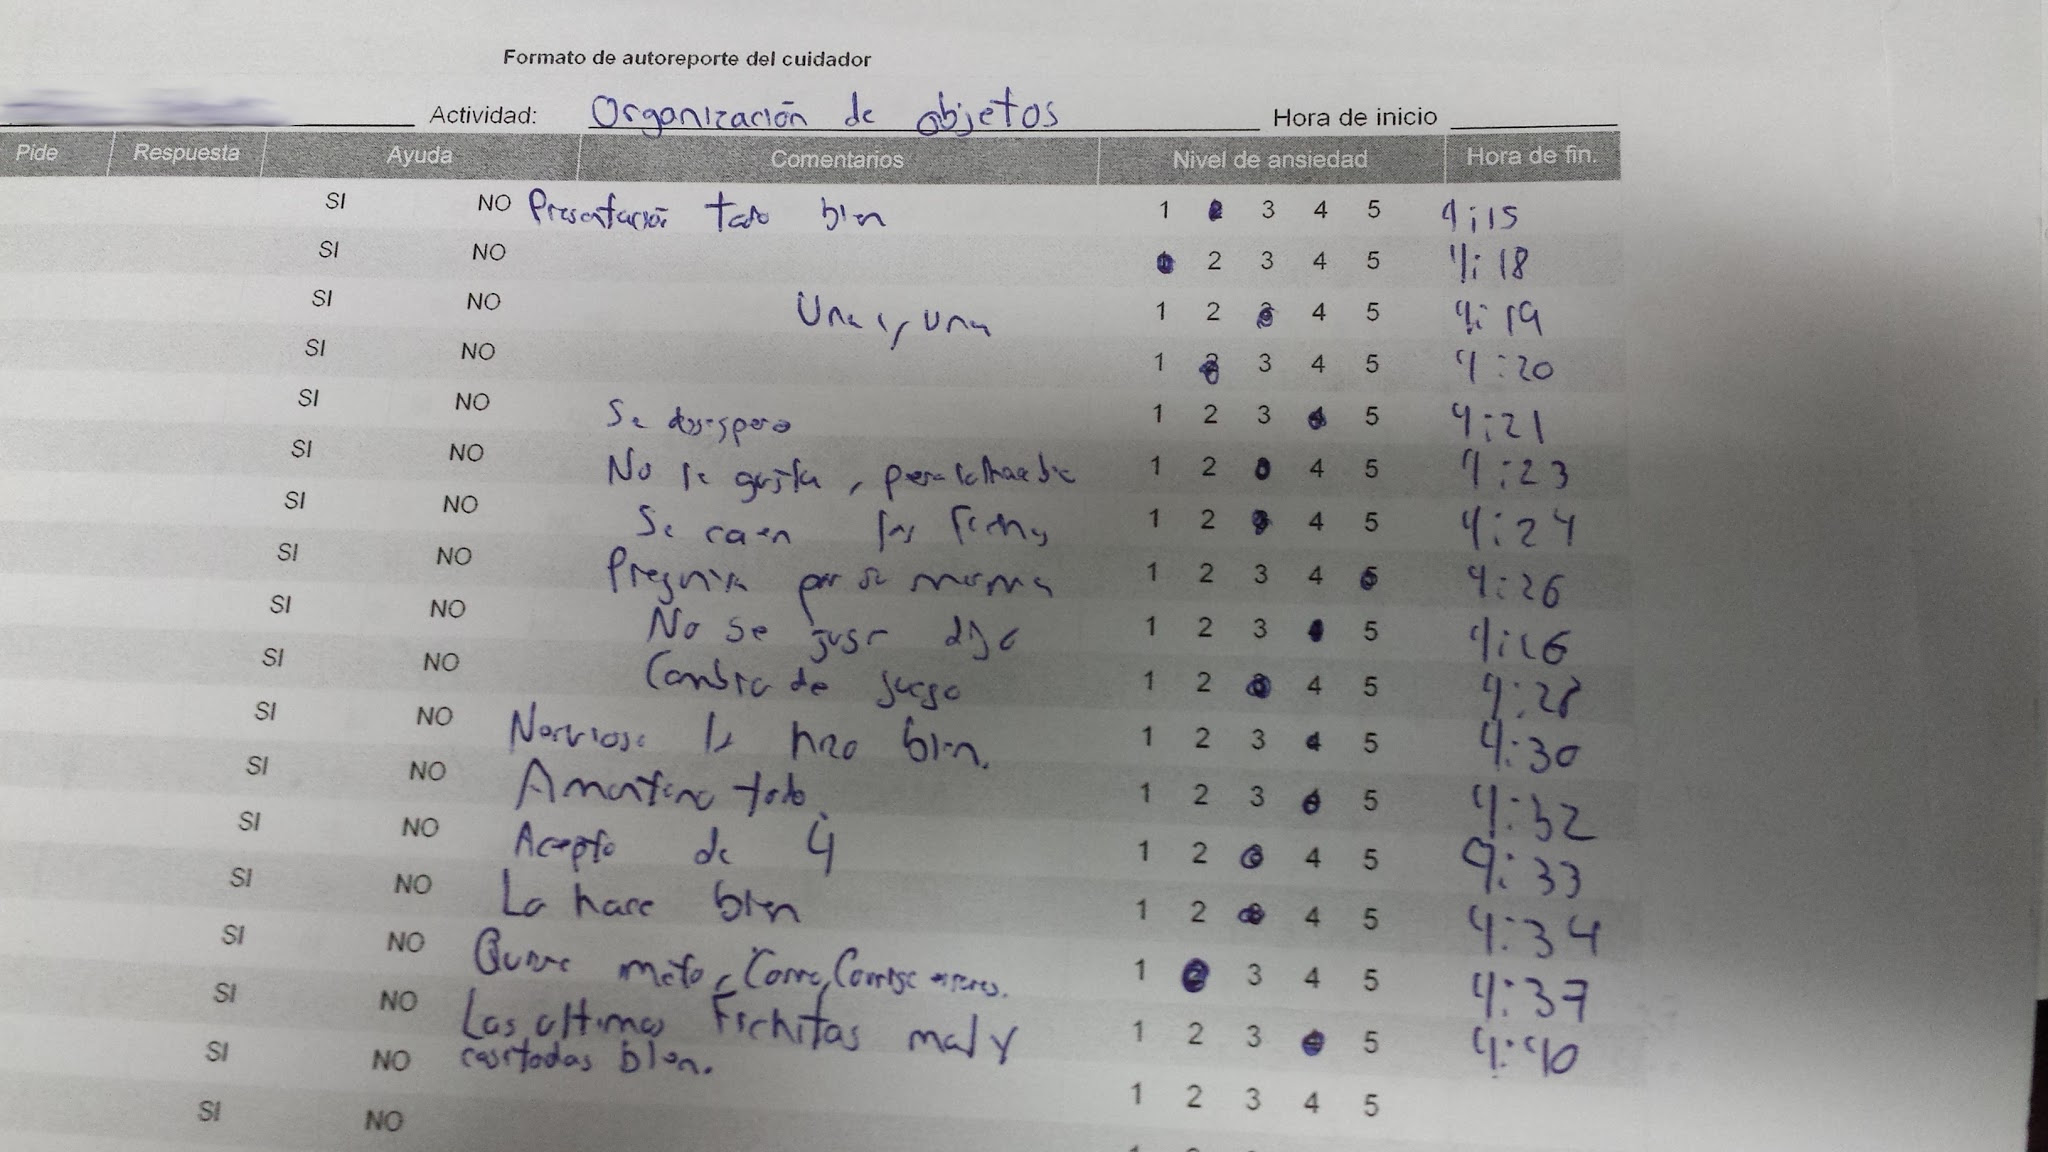 Formato de autoreporte del cuidador
Actividad: Organización de objetos Hora de inicio
Pide Respuesta Ayuda Comentarios Nivel de ansiedad Hora de fin.
SI NO Presentación todo bien 1 2 3 4 5 4:15
SI NO 1 2 3 4 5 4:18
SI NO Una y una 1 2 3 4 5 4:19
SI NO 1 2 3 4 5 4:20
SI NO Se desespera 1 2 3 4 5 4:21
SI NO No le gusta, pero lo hace 1 2 3 4 5 4:23
SI NO Se caen las fichas 1 2 3 4 5 4:24
SI NO Pregunta por su mamá 1 2 3 4 5 4:26
SI NO No se jugar dijo 1 2 3 4 5 4:26
SI NO Cambio de juego 1 2 3 4 5 4:28
SI NO Nerviosa lo hizo bien. 1 2 3 4 5 4:30
SI NO Amontona todo. 1 2 3 4 5 4:32
SI NO Acepto de 4 1 2 3 4 5 4:33
SI NO Lo hace bien 1 2 3 4 5 4:34
SI NO Quiere Corrige 1 2 3 4 5 4:37
SI NO Las ultimas Fichitas mal y 1 2 3 4 5 4:40
SI NO casitodas bien. 1 2 3 4 5
SI NO